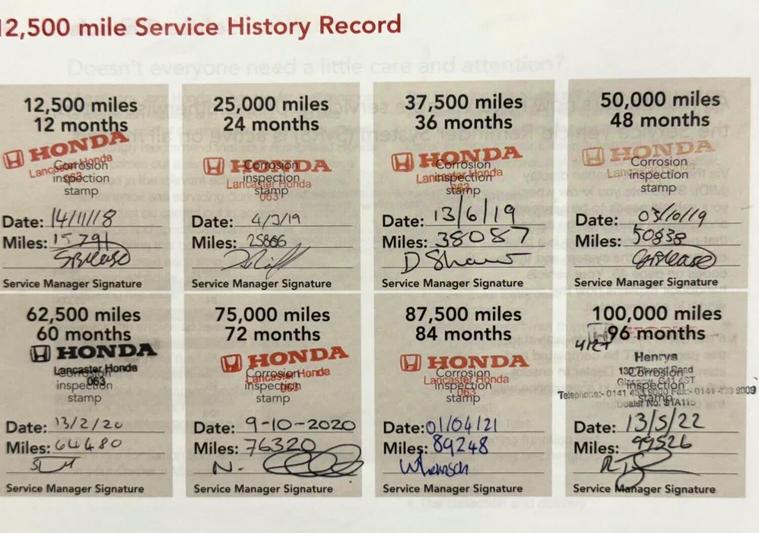 12,500 mile Service History Record
Doesn't everyone need a little care and attention?
12,500 miles
12 months
HONDA
Corrosion
Lancaster Honda
inspection
063
stamp
Date: 14/11/18
Miles: 15791
Service Manager Signature
25,000 miles
24 months
HONDA
Corrosion
Lancaster Honda
inspection
063
stamp
Date: 4/3/19
Miles: 25866
Service Manager Signature
37,500 miles
36 months
HONDA
Corrosion
Lancaster Honda
inspection
063
stamp
Date: 13/6/19
Miles: 38087
D Shaw
Service Manager Signature
50,000 miles
48 months
HONDA
Corrosion
Lancaster Honda
inspection
stamp
Date: 03/10/19
Miles: 50838
Service Manager Signature
62,500 miles
60 months
HONDA
Lancaster Honda
Corrosion
063
inspection
stamp
Date: 13/2/20
Miles: 64480
Service Manager Signature
75,000 miles
72 months
HONDA
Corrosion
Lancaster Honda
inspection
063
stamp
Date: 9-10-2020
Miles: 76320
N.
Service Manager Signature
87,500 miles
84 months
HONDA
Corrosion
Lancaster Honda
inspection
063
stamp
Date: 01/04/21
Miles: 89248
Service Manager Signature
100,000 miles
96 months
Henrys
Corrosion
inspection
stamp
Date: 13/5/22
Miles: 99526
Service Manager Signature